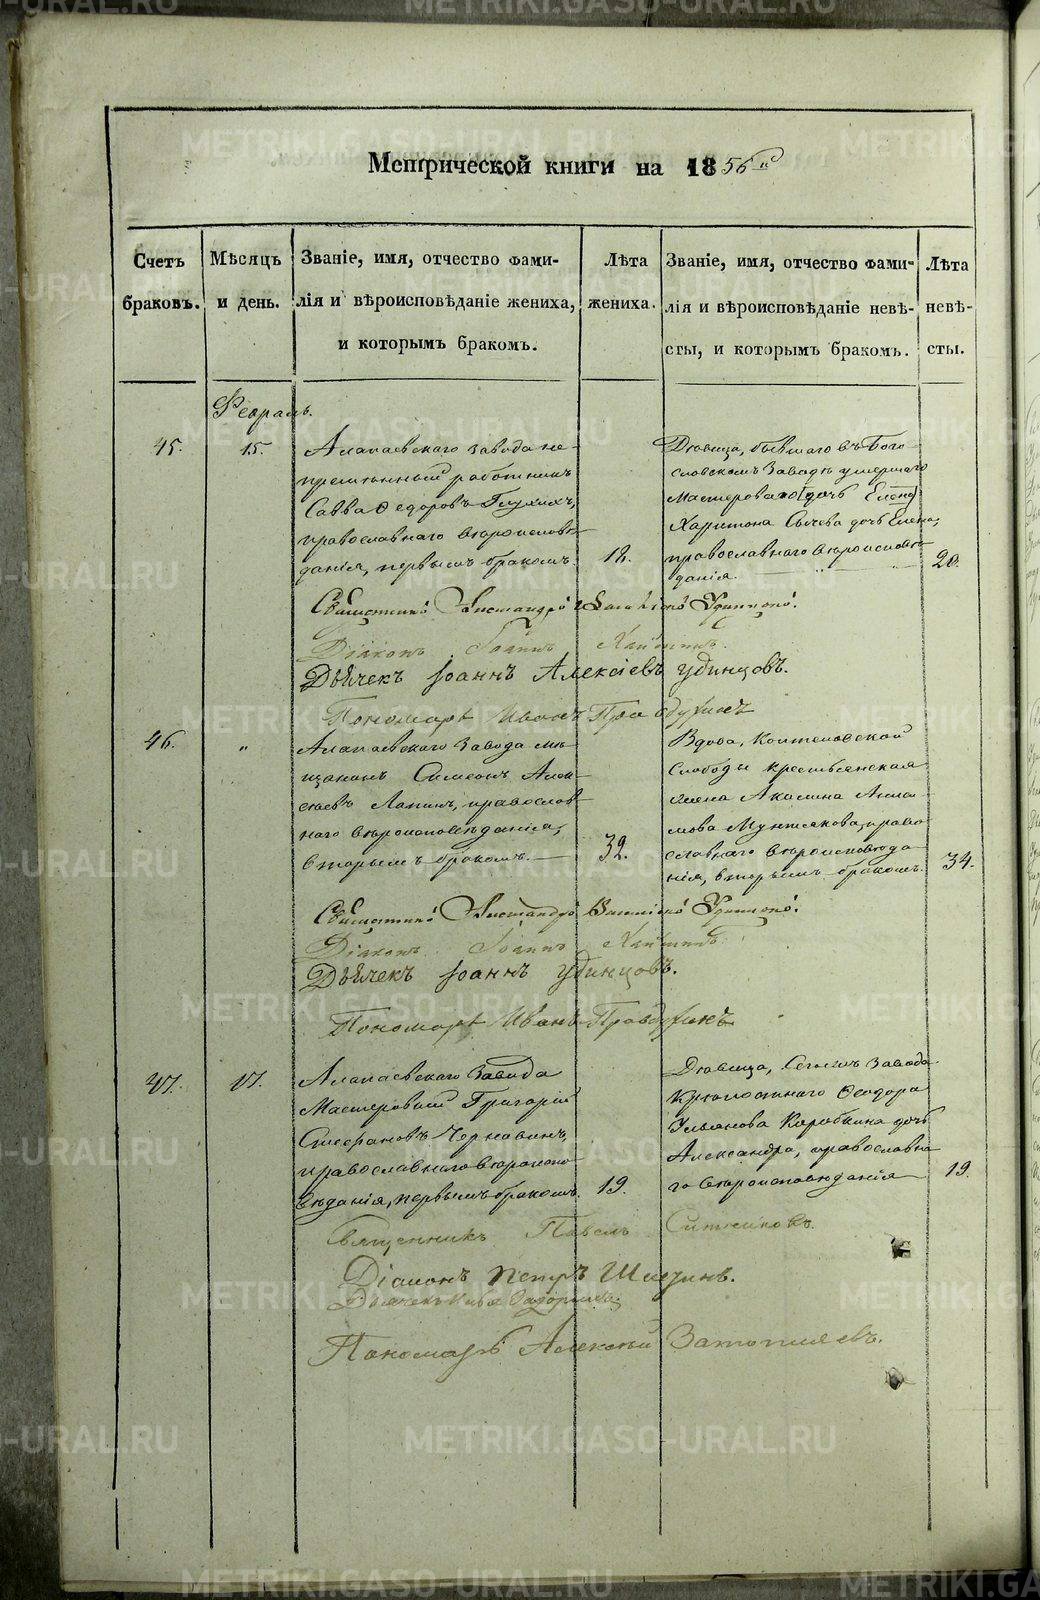 Метрической книги на 1856й
Счетъ браковъ.
Мѣсяцъ и день.
Званіе, имя, отчество фами-
лія и вѣроисповѣданіе жениха,
и которымъ бракомъ.
Лѣта
жениха.
Званіе, имя, отчество фами-
лія и вѣроисповѣданіе невѣ-
сты, и которымъ бракомъ.
Лѣта
невѣ-
сты.
Февраль.
45.
15.
Алапаевскаго завода не-
премѣнный работникъ
Савва Ѳедоровъ Глухихъ,
православнаго вѣроисповѣ-
данія, первымъ бракомъ.
18.
Дѣвица, бывшаго въ Бого-
словскомъ Заводѣ умершаго
Мастероваго дочь Елена
Харитона Сычева дочь Елена,
православнаго вѣроисповѣ-
данія.
20.
Священникъ Александръ Удинцовъ.
Діаконъ Іоаннъ
Дьячекъ Іоаннъ Алексіевъ Удинцовъ.
Пономарь Иванъ Правдухинъ
46.
"
Алапаевскаго Завода мѣ-
щанинъ Симеонъ Алек-
сѣевъ Лапинъ, православ-
наго вѣроисповѣданія,
вторымъ бракомъ.
32.
Вдова, Коптеловской
Слободы крестьянская
жена Акилина
православнаго вѣроисповѣда-
нія, вторымъ бракомъ.
34.
Священникъ Александръ Удинцовъ.
Діаконъ Іоаннъ
Дьячекъ Іоаннъ Удинцовъ.
Пономарь Иванъ Правдухинъ
47.
17.
Алапаевскаго Завода
Мастеровый Григорій
Стефановъ Чернавинъ,
православнаго вѣроиспо-
вѣданія, первымъ бракомъ.
19.
Дѣвица, Завода
Крѣпостнаго Ѳеодора
Ульянова Коробкина дочь
Александра, православна-
го вѣроисповѣданія
19.
Священникъ Павелъ Ситниковъ.
Діаконъ Петръ
Дьячекъ
Пономарь Алексѣй
METRIKI.GASO-URAL.RU